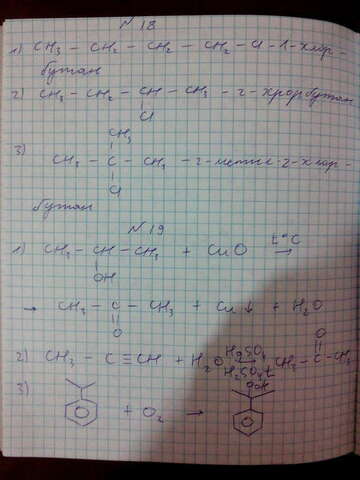 № 18
1) CH₃ – CH₂ – CH₂ – CH₂ – Cl – 1-хлор-
бутан
2) CH₃ – CH₂ – CH – CH₃ – 2-хлорбутан
Cl
CH₃
3) CH₃ – C – CH₃ – 2-метил-2-хлор-
Cl
бутан
№ 19
1) CH₃ – CH – CH₃ + CuO t°C →
OH
→ CH₃ – C – CH₃ + Cu↓ + H₂O
O
O
2) CH₃ – C ≡ CH + H₂O HgSO₄ H₂SO₄ CH₃ – C – CH₃
3) + O₂ →
OOH